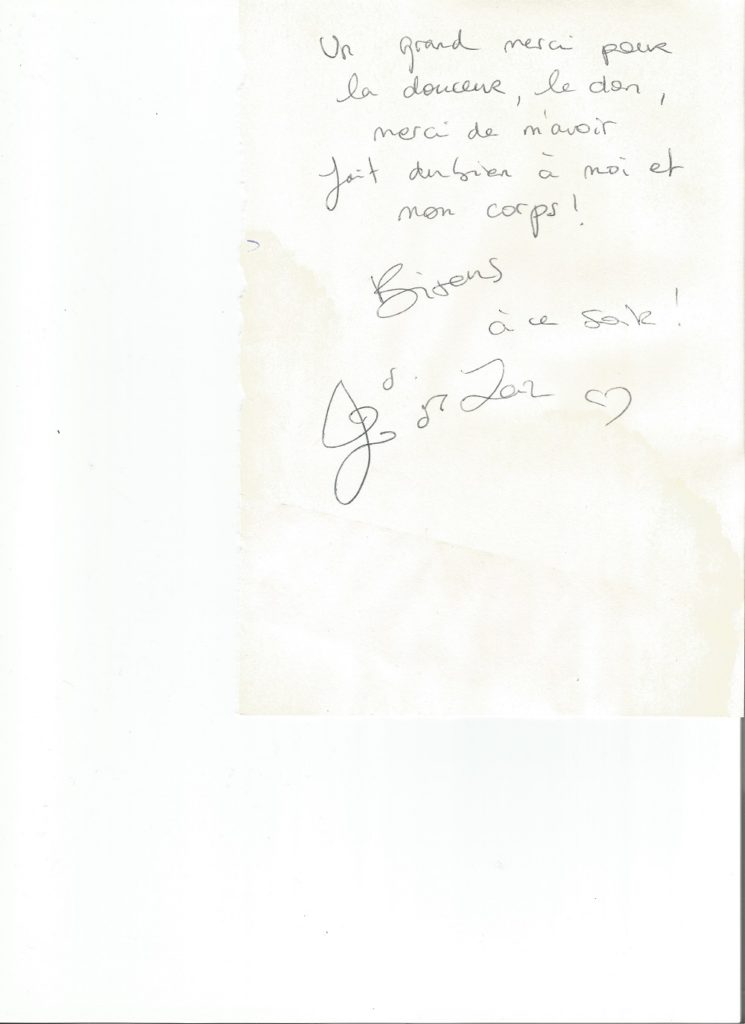 Un grand merci pour
la douceur, le don,
merci de m'avoir
fait du bien à moi et
mon corps !
Bisous
à ce soir !
Zaz